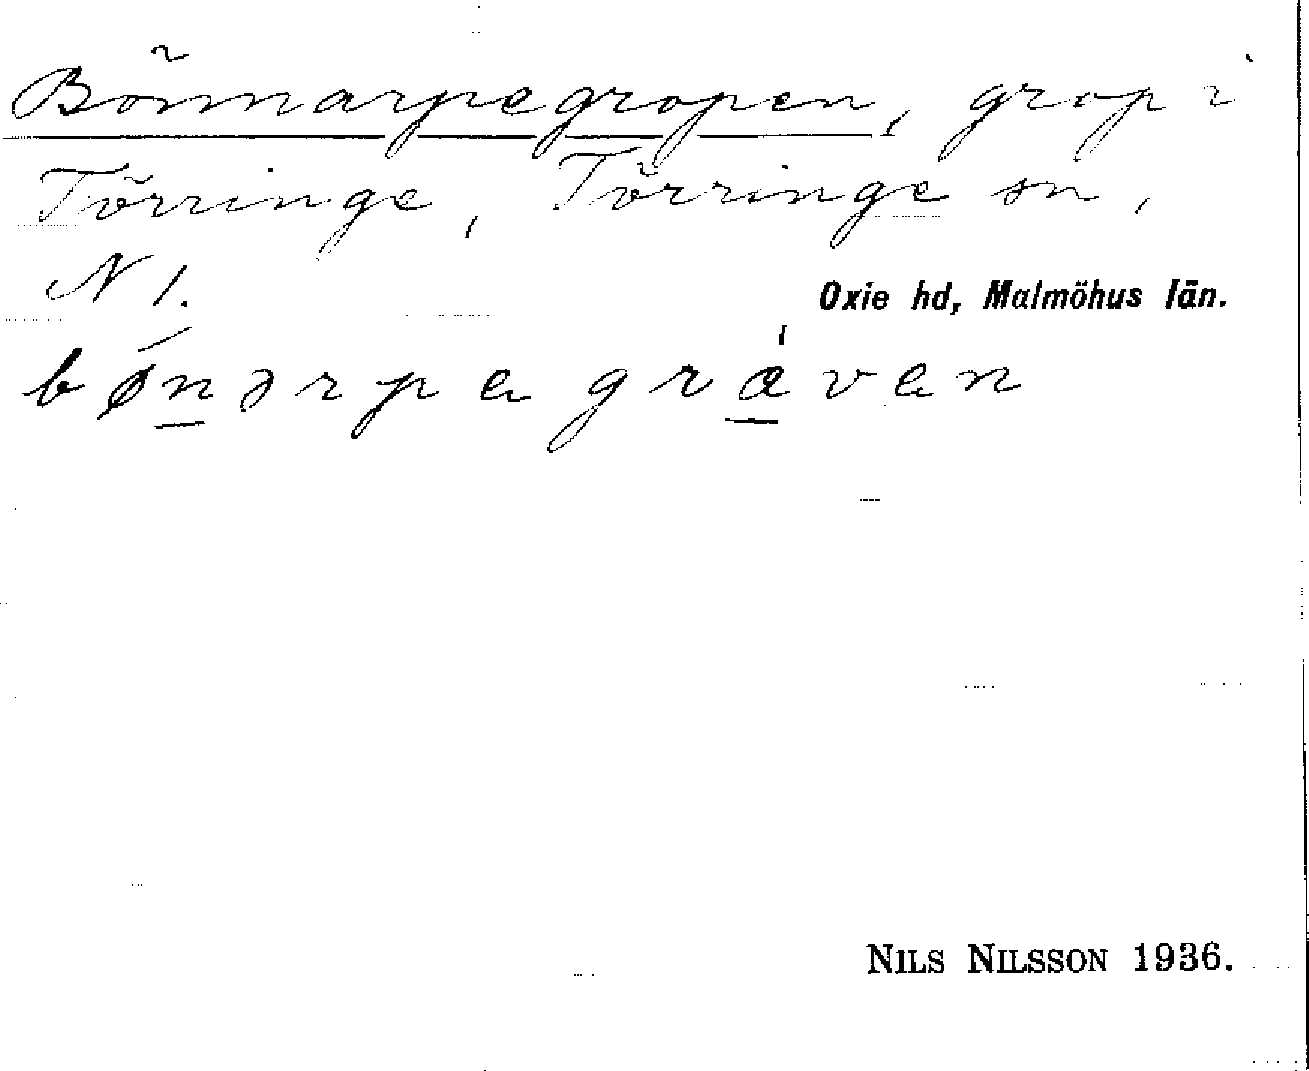 Bönnarpegropen, grop i
Törringe, Törringe sn,
N 1.
Oxie hd, Malmöhus län.
bǿn̲ərpa grǽ̲ven
NILS NILSSON 1936.